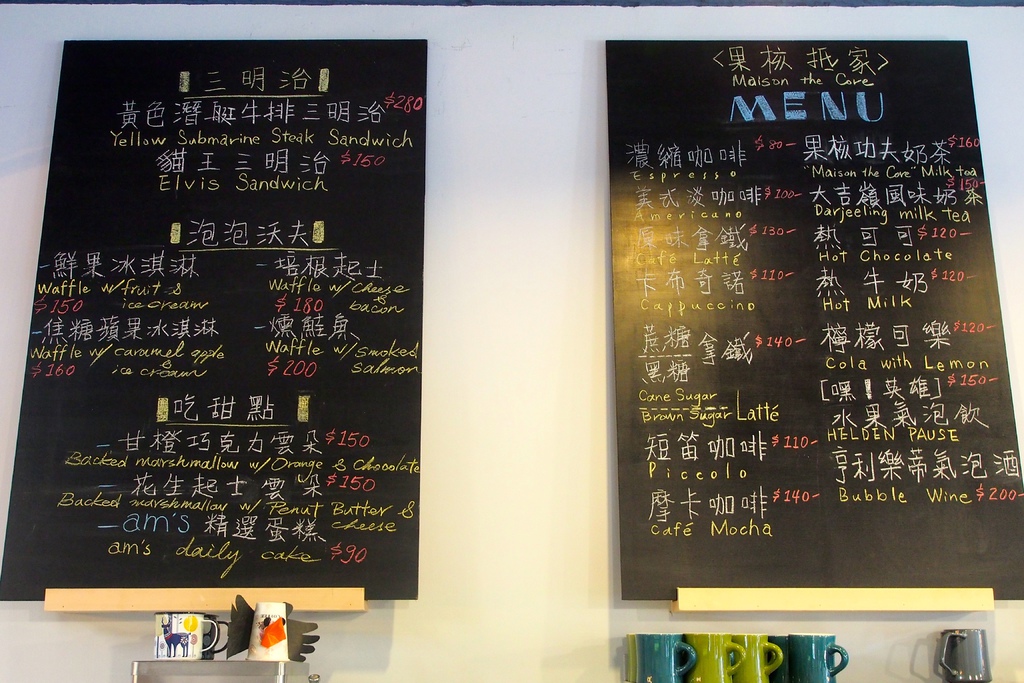 三明治
黃色潛艇牛排三明治 $280
Yellow Submarine Steak Sandwich
貓王三明治 $150
Elvis Sandwich
泡泡沃夫
-鮮果冰淇淋
Waffle w/ fruit &
$150 ice cream
-培根起士
Waffle w/ cheese
& $180 bacon
-焦糖蘋果冰淇淋
Waffle w/ caramel apple
$160 & ice cream
-燻鮭魚
Waffle w/ smoked
$200 salmon
吃甜點
-甘橙巧克力雲朵 $150
Backed marshmallow w/ Orange & Chocolate
-花生起士雲朵 $150
Backed marshmallow w/ Penut Butter & cheese
-am's 精選蛋糕
am's daily cake $90
<果核抵家>
Maison the Core
MENU
濃縮咖啡 $80-
Espresso
美式淡咖啡 $100-
Americano
原味拿鐵 $130-
Café Latté
卡布奇諾 $110-
Cappuccino
蔗糖
黑糖 拿鐵 $140-
Cane Sugar
Brown Sugar Latté
短笛咖啡 $110-
Piccolo
摩卡咖啡 $140-
Café Mocha
果核功夫奶茶 $160
"Maison the Core" Milk tea
大吉嶺風味奶茶 $150-
Darjeeling milk tea
熱可可 $120-
Hot Chocolate
熱牛奶 $120-
Hot Milk
檸檬可樂 $120-
Cola with Lemon
[嘿！英雄] $150-
水果氣泡飲
HELDEN PAUSE
亨利樂蒂氣泡酒
Bubble Wine $200-